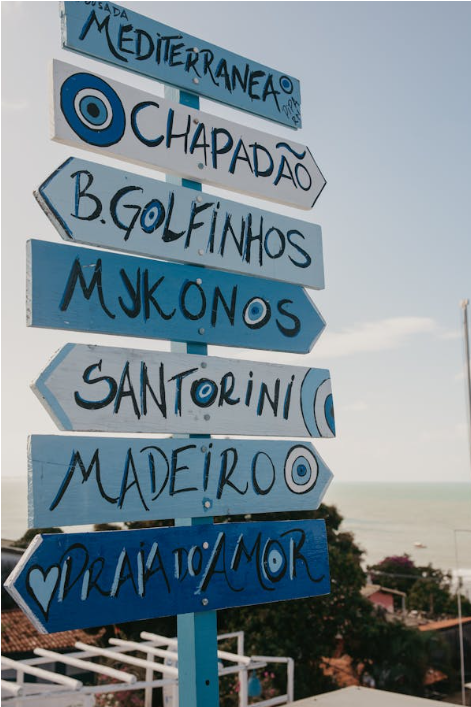 POUSADA
MEDITERRANEA
PIPA
RN
CHAPADÃO
B. GOLFINHOS
MYKONOS
SANTORINI
MADEIRO
PRAIA DO AMOR